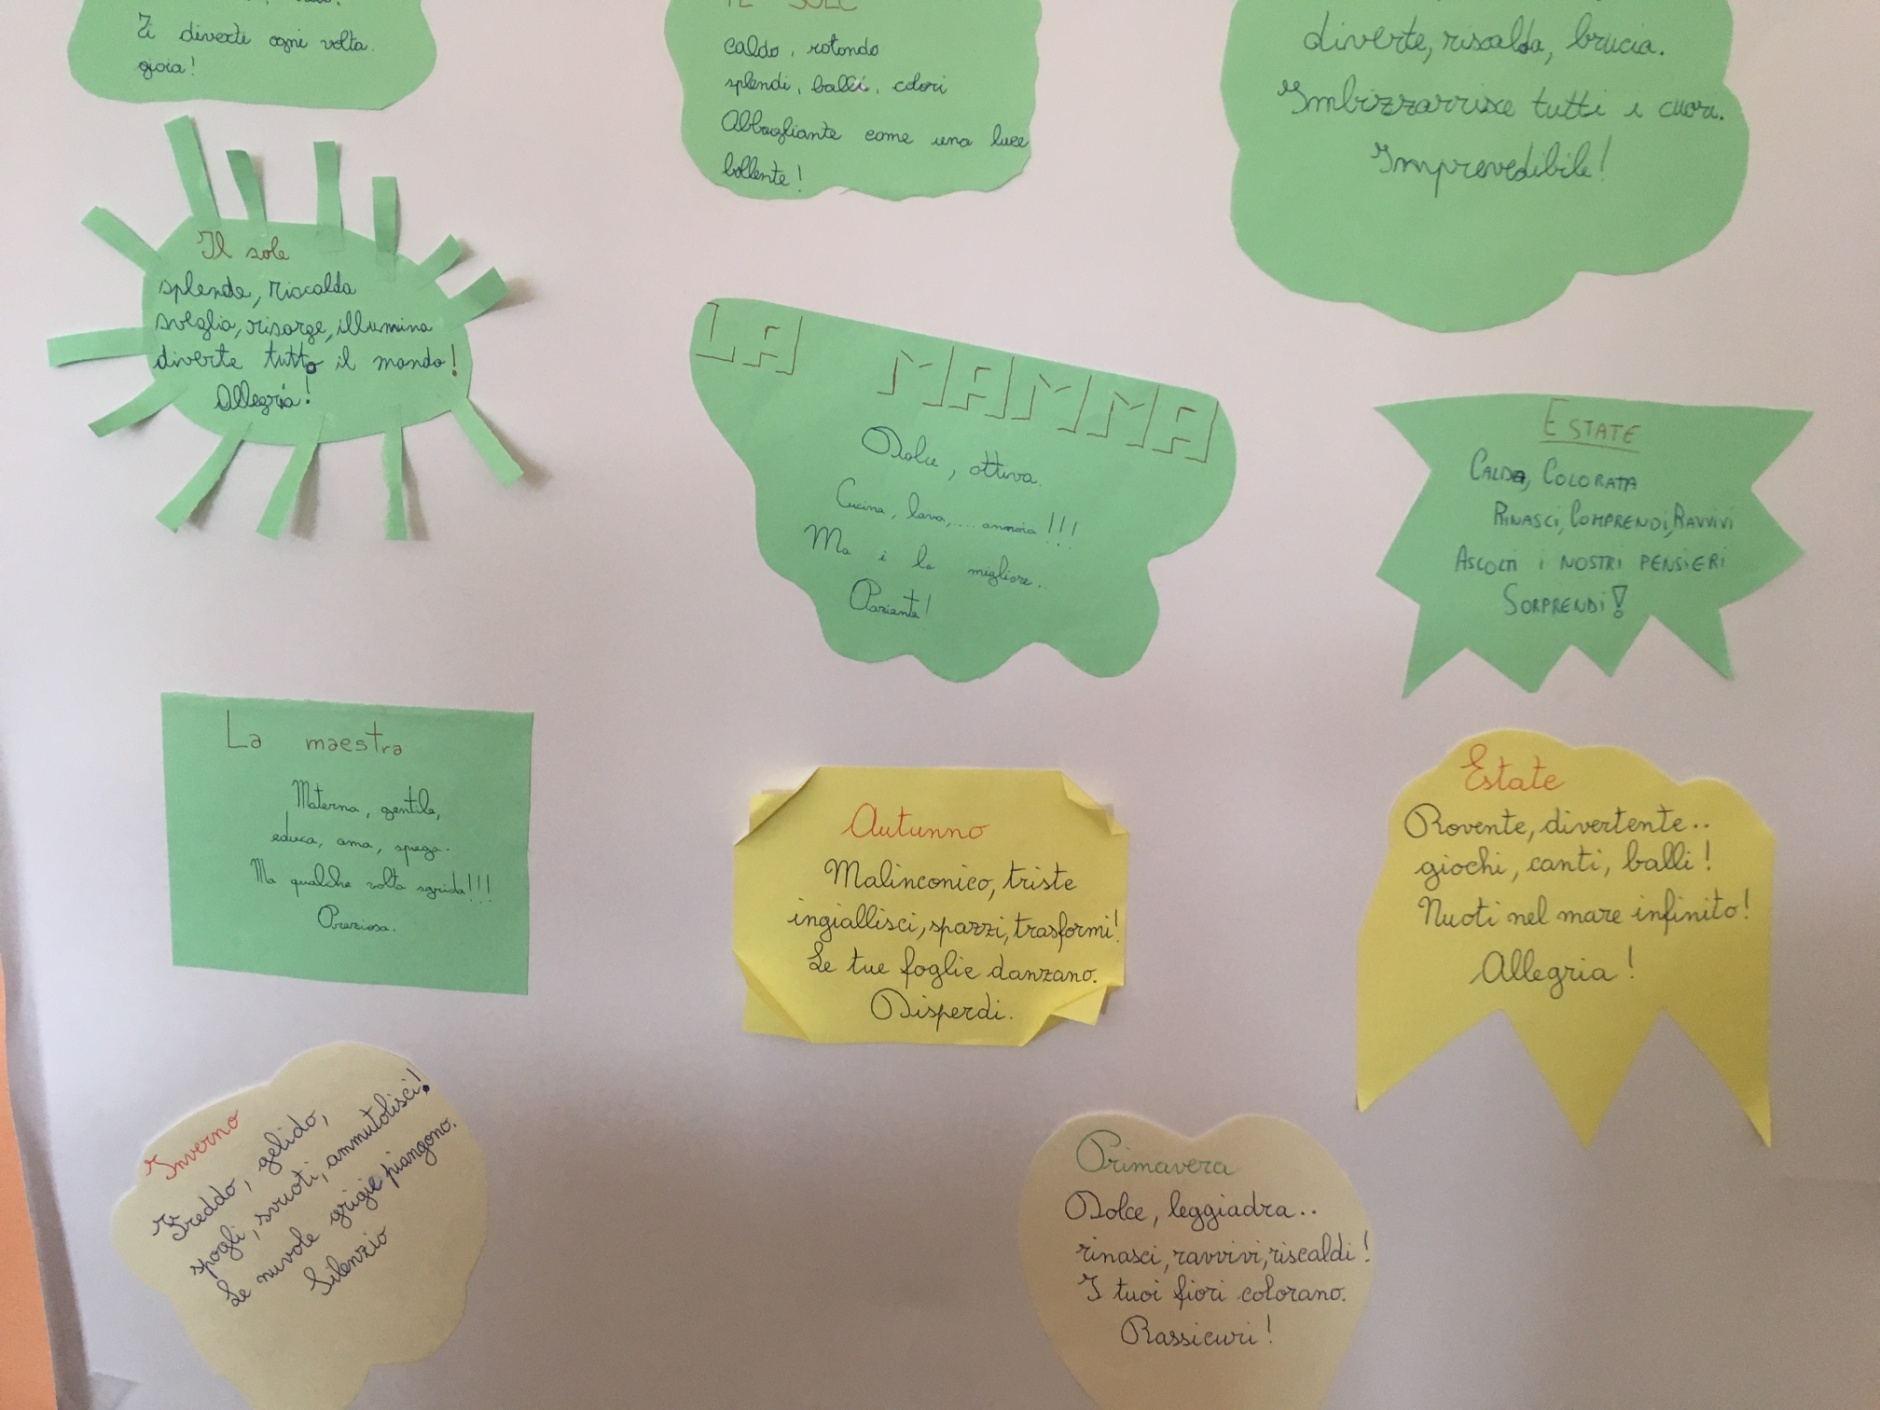 Ti diverte ogni volta.
gioia!
IL SOLE
caldo, rotondo
splendi, balli, colori
Abbagliante come una luce
bollente!
diverte, riscalda, brucia.
Imbizzarrisce tutti i cuori.
Imprevedibile!
Il sole
splende, riscalda
sveglia, risorge, illumina
diverte tutto il mondo!
Allegria!
LA MAMMA
Dolce, attiva.
Cucina, lava,.... annoia!!!
Ma è la migliore..
Paziente!
ESTATE
CALDA, COLORATA
RINASCI, COMPRENDI, RAVVIVI
ASCOLTI I NOSTRI PENSIERI
SORPRENDI!
La maestra
Materna, gentile,
educa, ama, spiega.
Ma qualche volta sgrida!!!
Preziosa.
Autunno
Malinconico, triste
ingiallisci, spazzi, trasformi!
Le tue foglie danzano.
Disperdi.
Estate
Rovente, divertente..
giochi, canti, balli!
Nuoti nel mare infinito!
Allegria!
Inverno
Freddo, gelido,
spogli, svuoti, ammutolisci!
Le nuvole grigie piangono.
Silenzio
Primavera
Dolce, leggiadra..
rinasci, ravvivi, riscaldi!
I tuoi fiori colorano.
Rassicuri!